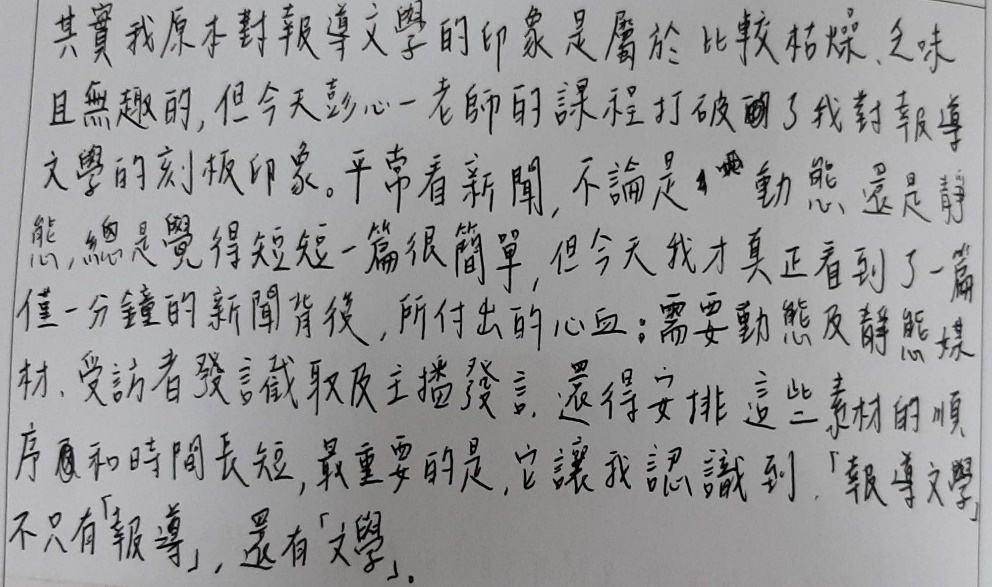 其實我原本對報導文學的印象是屬於比較枯燥、乏味
且無趣的,但今天彭心一老師的課程打破了我對報導
文學的刻板印象。平常看新聞,不論是動態還是靜
態,總是覺得短短一篇很簡單,但今天我才真正看到了一篇
僅一分鐘的新聞背後,所付出的心血:需要動態及靜態媒
材、受訪者發言截取及主播發言,還得安排這些素材的順
序和時間長短,最重要的是,它讓我認識到,「報導文學」
不只有「報導」,還有「文學」。